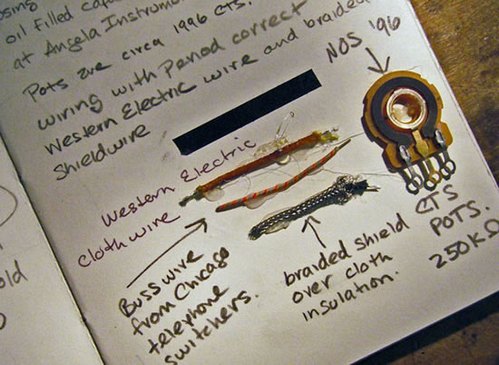 oil filled
at Angela Instrum
Pots are circa 1996 CTS.
wiring with Period correct
Western Electric wire and braided
Shieldwire
NOS '96
Western Electric
Cloth wire
Buss wire
from Chicago
telephone
switchers.
braided shield
over cloth
insulation.
CTS
POTS.
250KΩ
old